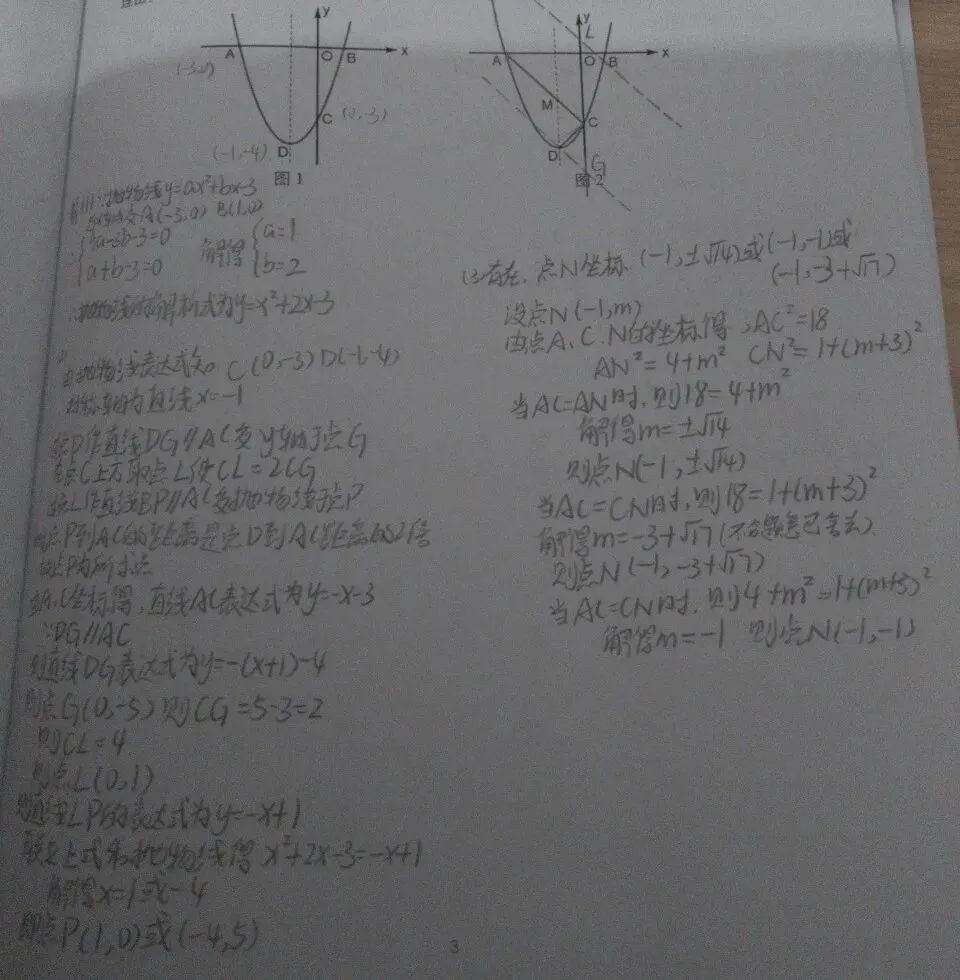 y
A
O
B
x
(-3,0)
C
(0,-3)
(-1,-4)
D
图1
y
L
A
O
B
x
M
C
D
G
图2
抛物线y=ax²+bx-3
交A(-3,0) B(1,0)
9a-3b-3=0
a+b-3=0
解得
a=1
b=2
∴抛物线的解析式为y=x²+2x-3
由抛物线表达式知 C(0,-3) D(-1,-4)
对称轴为直线x=-1
过D作直线DG∥AC交y轴于点G
在点C上方取点L使CL=2CG
过L作直线BP∥AC交抛物线于点P
点P到AC的距离是点D到AC距离的2倍
点P为所求点
由A,C坐标得,直线AC表达式为y=-x-3
∵DG∥AC
则直线DG表达式为y=-(x+1)-4
则点G(0,-5)则CG=5-3=2
则CL=4
则点L(0,1)
则直线LP的表达式为y=-x+1
联立上式和抛物线得x²+2x-3=-x+1
解得x=1或-4
即点P(1,0)或(-4,5)
(3)存在,点N坐标(-1,±√14)或(-1,-1)或
(-1,-3+√17)
设点N(-1,m)
由点A、C、N的坐标得,AC²=18
AN²=4+m² CN²=1+(m+3)²
当AC=AN时,则18=4+m²
解得m=±√14
则点N(-1,±√14)
当AC=CN时,则18=1+(m+3)²
解得m=-3+√17(不合题意已舍去)
则点N(-1,-3+√17)
当AC=CN时,则4+m²=1+(m+3)²
解得m=-1 则点N(-1,-1)
3